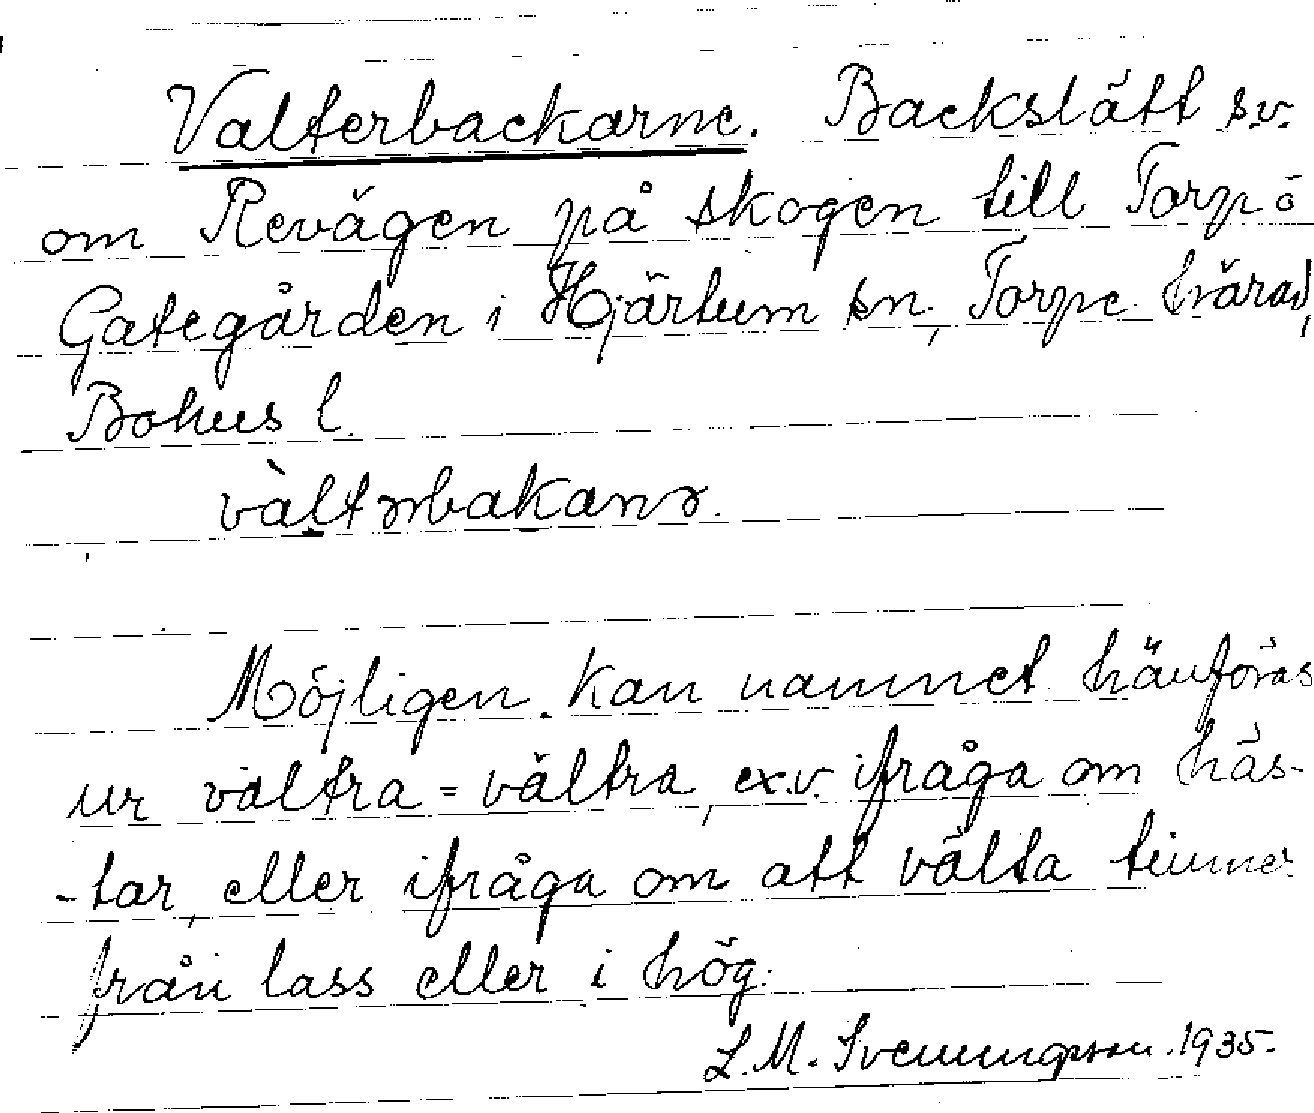 Valterbackarne. Backslätt s.v.
om Revägen på skogen till Torp ö
Gategården i Hjärtum sn, Torpe härad,
Bohus l.
vàltərbakanə.
Möjligen kan namnet hänföras
ur valtra = vältra, ex.v. ifråga om häs-
-tar, eller ifråga om att välta timmer
från lass eller i hög.
L. M. Svenungsson. 1935.